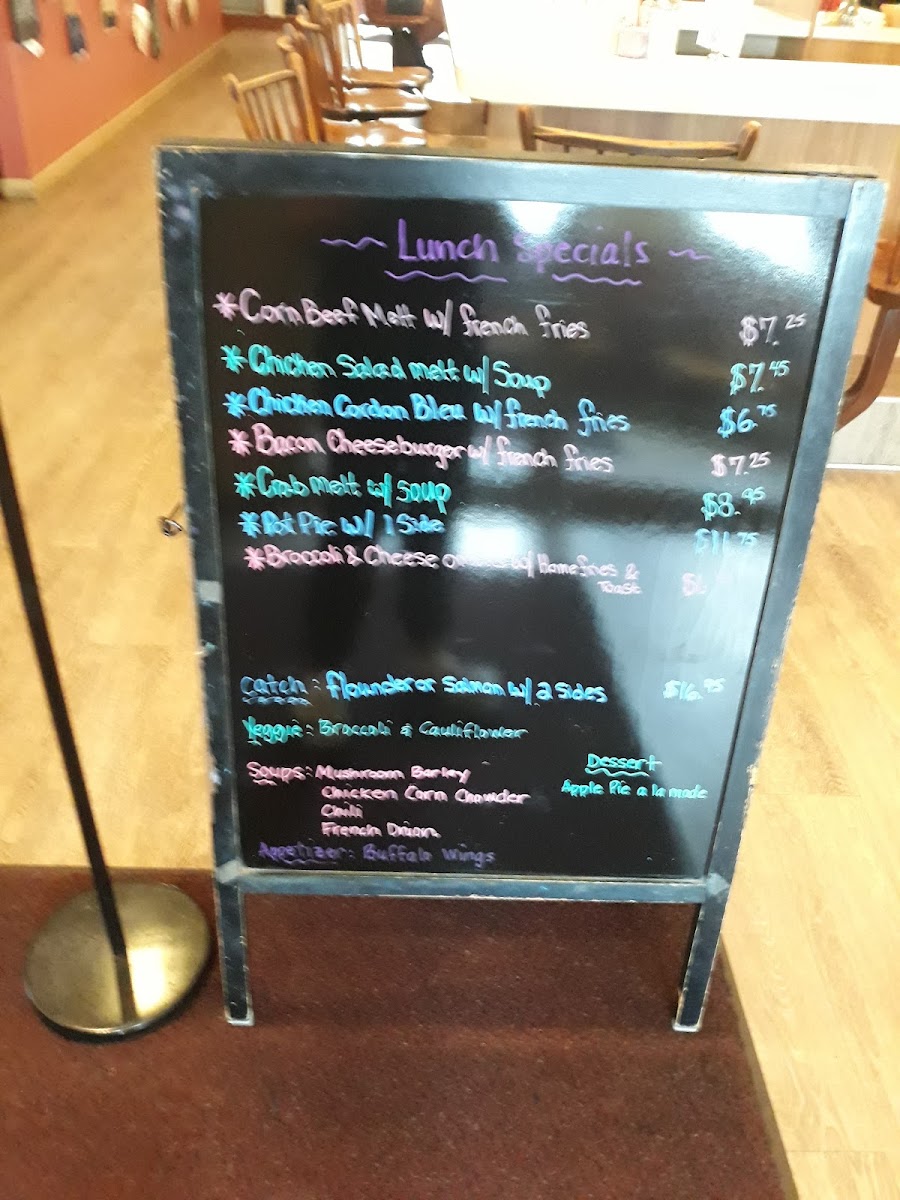 ~ Lunch Specials ~
*Corn Beef Melt w/ french fries $7.25
*Chicken Salad melt w/ Soup $7.45
*Chicken Cordon Bleu w/ french fries $6.75
*Bacon Cheeseburger w/ french fries $7.25
*Crab melt w/ soup $8.95
*Pot Pie w/ 1 Side $11.75
*Broccoli & Cheese w/ Homefries &
Toast
Catch: flounder or Salmon w/ 2 sides $16.95
Veggie: Broccoli & Cauliflower
Dessert
Apple Pie a la mode
Soups: Mushroom Barley
Chicken Corn Chowder
Chili
French Onion
Appetizer: Buffalo Wings